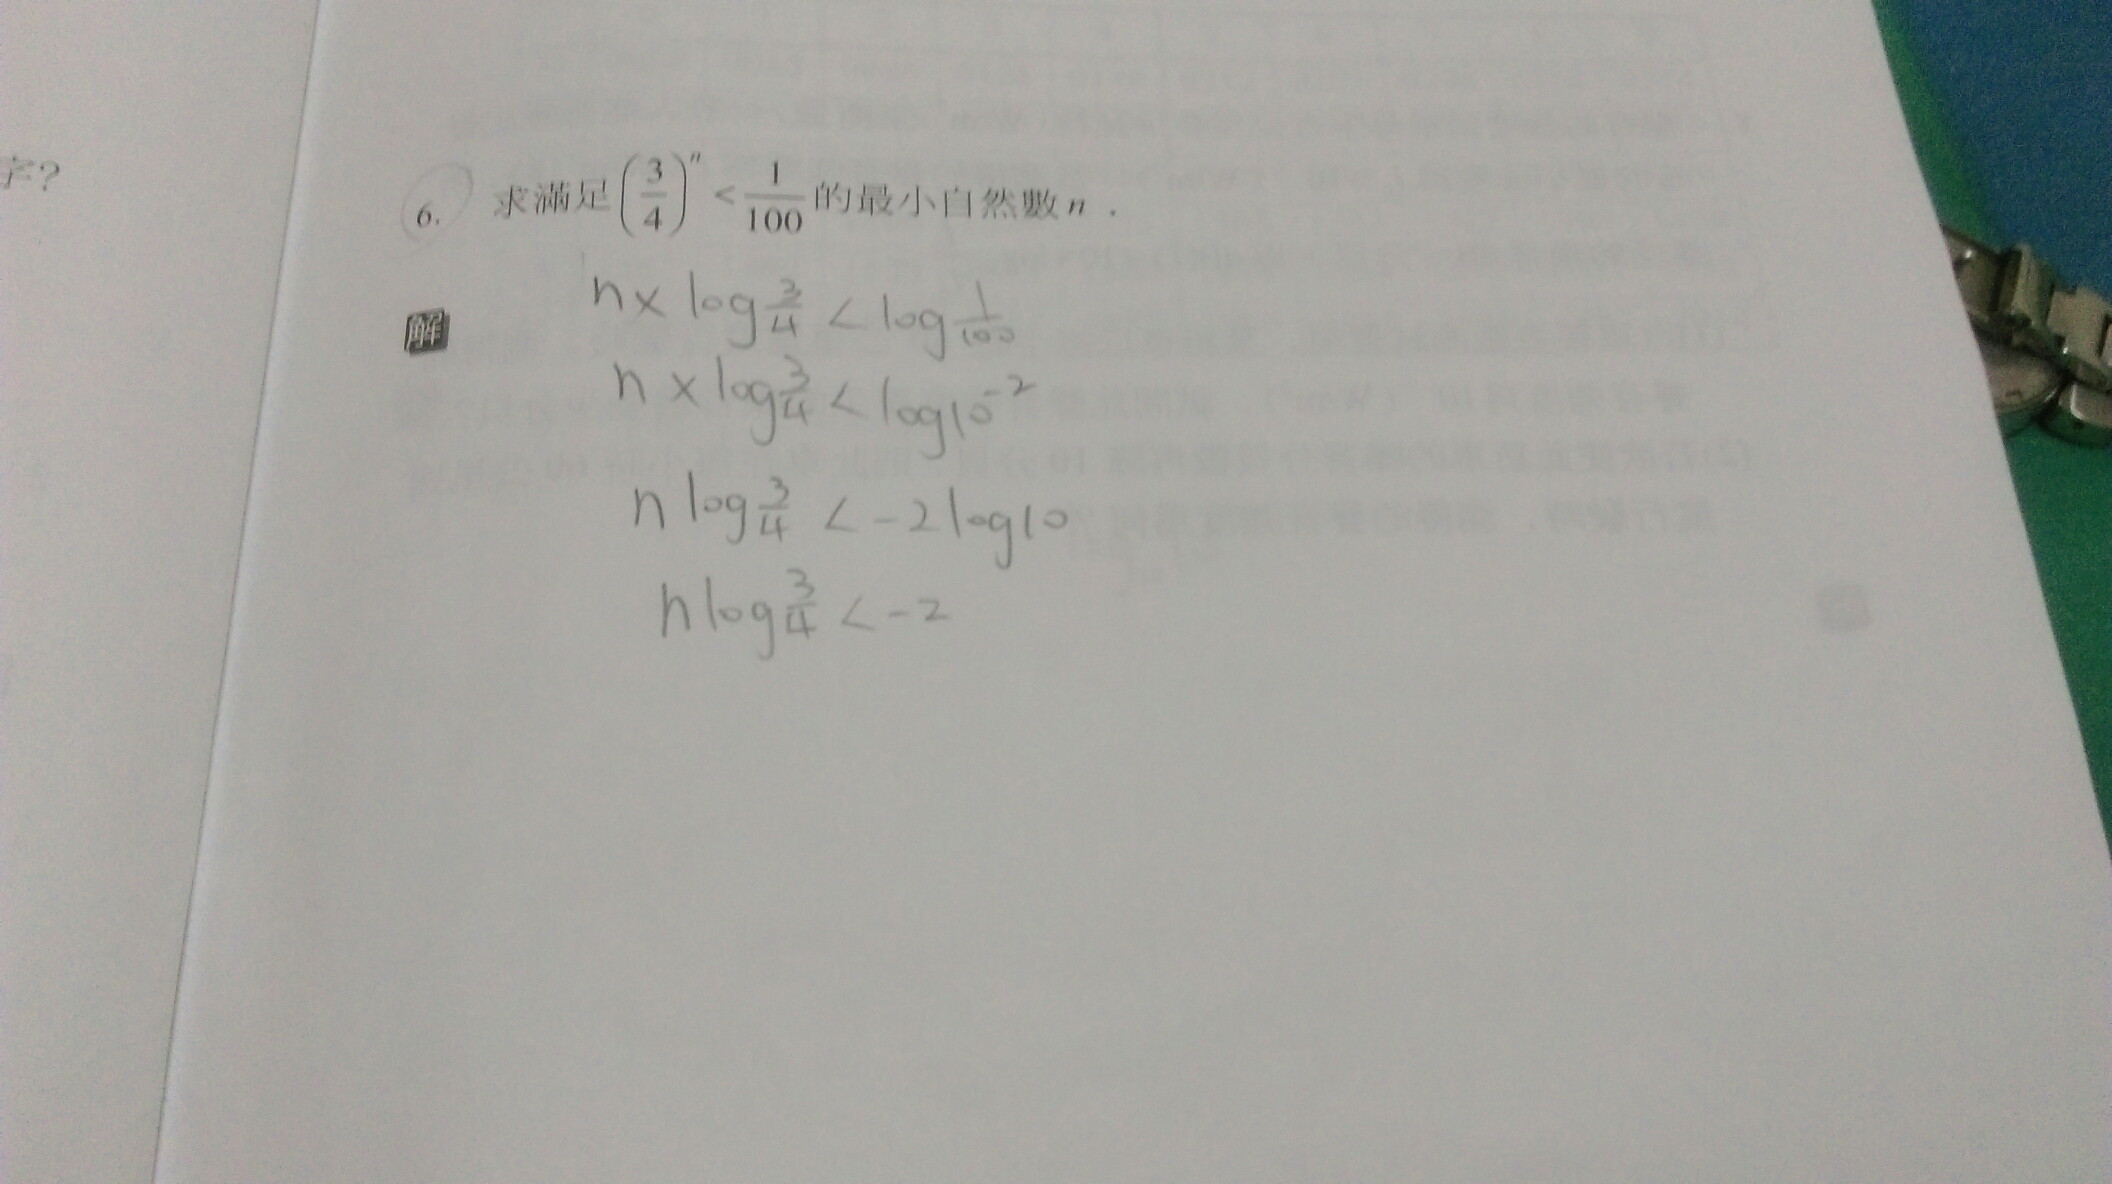 字?
6. 求滿足(3/4)^n < 1/100 的最小自然數 n .
解
n × log 3/4 < log 1/100
n × log 3/4 < log10^-2
n log 3/4 < -2log10
n log 3/4 < -2